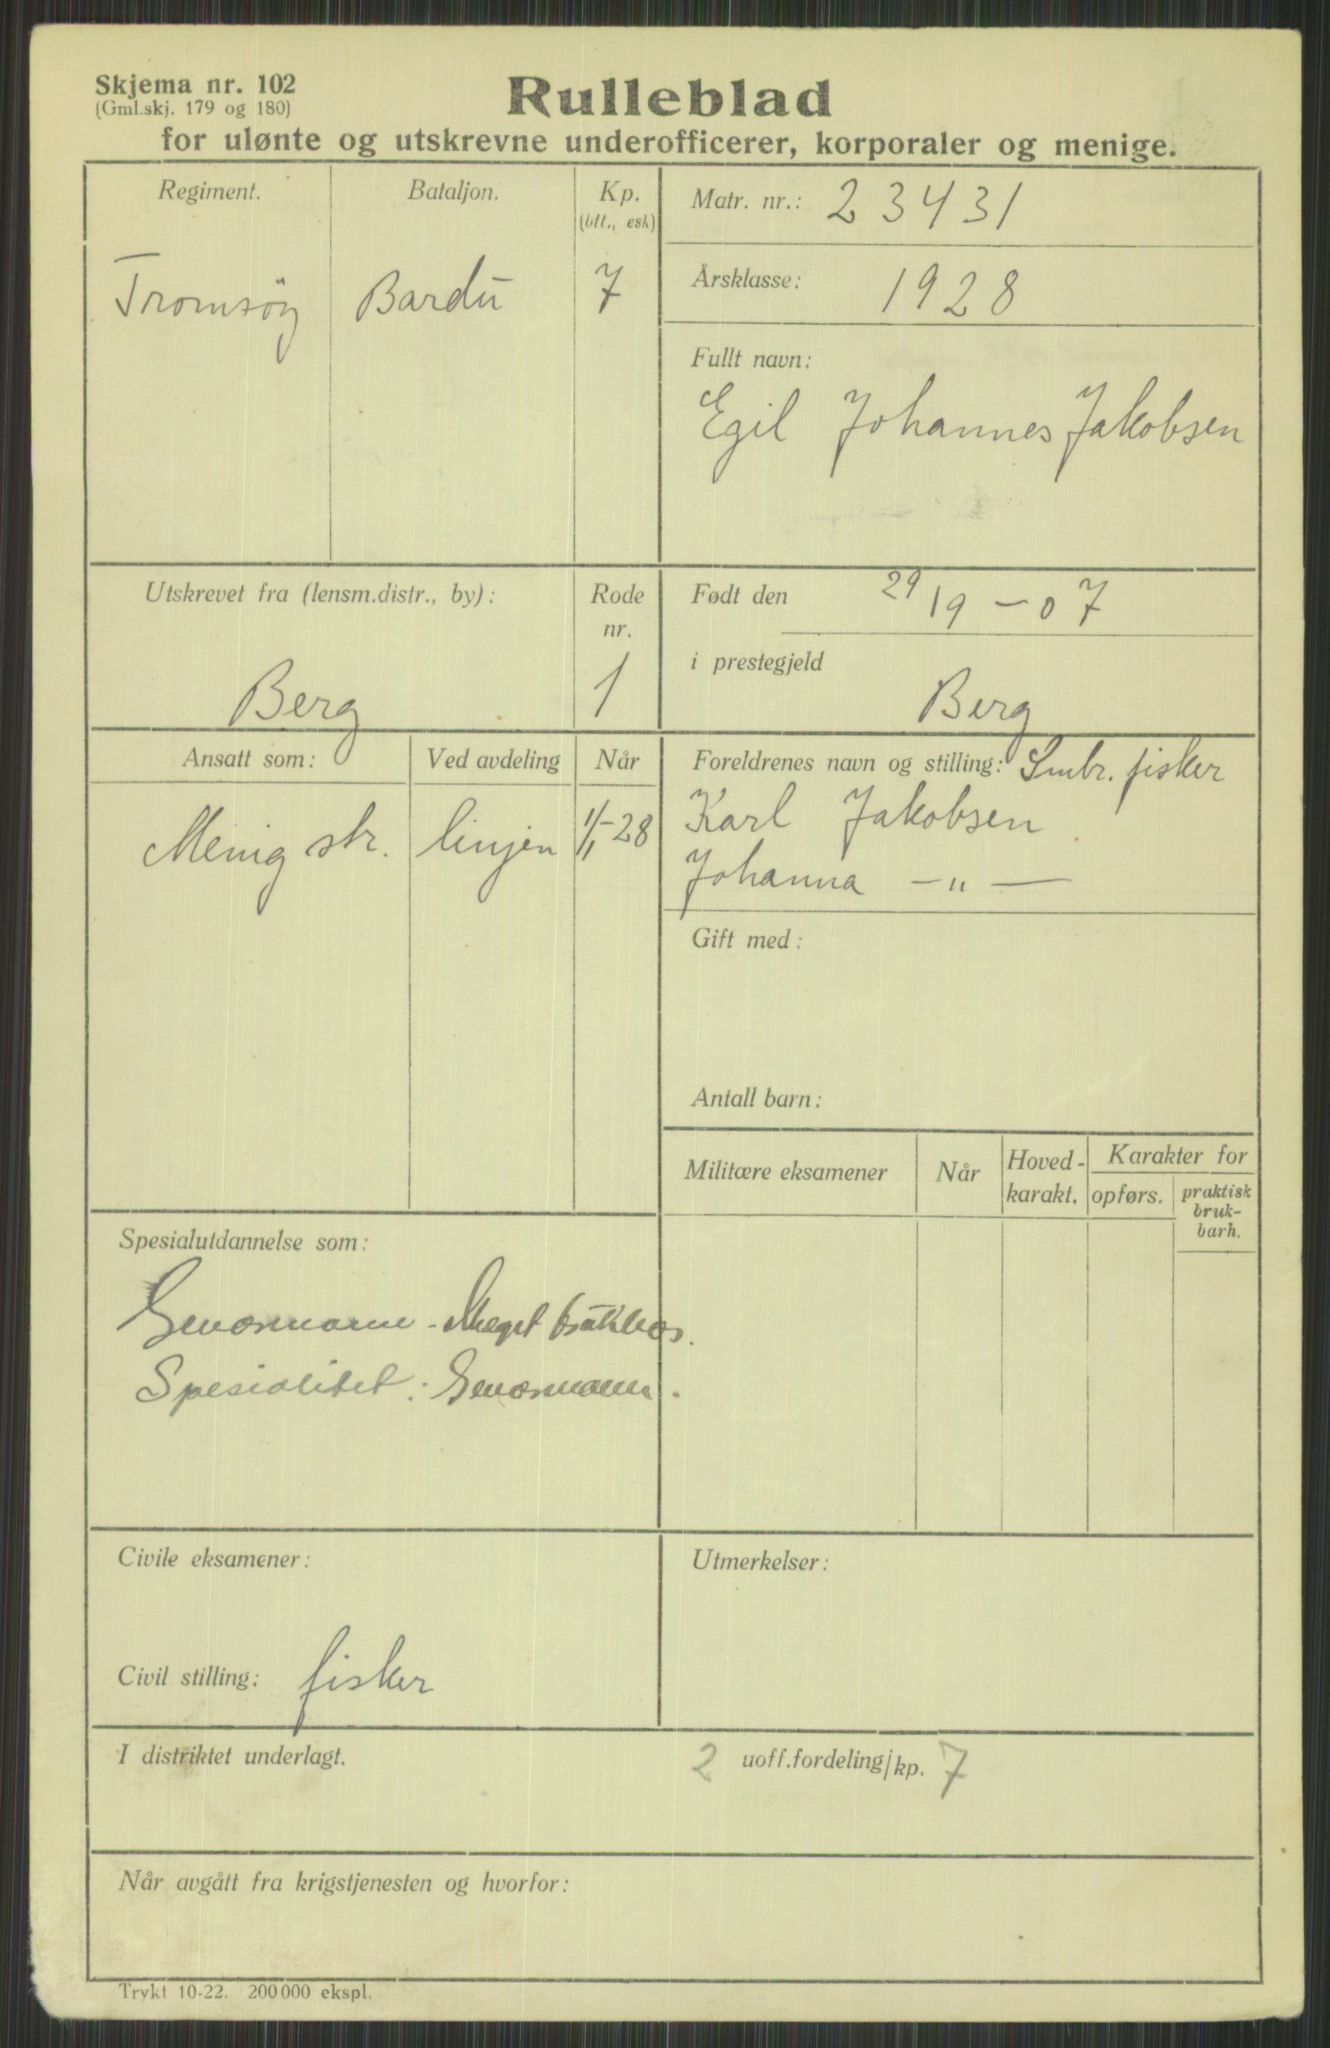 Skjema nr. 102
(Gml.skj. 179 og 180)
Rulleblad
for ulønte og utskrevne underofficerer, korporaler og menige.
Regiment. Bataljon. Kp. (btt., esk)
Tromsøy Bardu 7
Matr. nr.: 23431
Årsklasse: 1928
Fullt navn:
Egil Johannes Jakobsen
Utskrevet fra (lensm.distr., by): Rode nr.
Berg 1
Født den 29/9 - 07
i prestegjeld
Berg
Ansatt som: Ved avdeling Når
Menig str. linjen 1/1-28
Foreldrenes navn og stilling: Smbr. fisker
Karl Jakobsen
Johanna —"—
Gift med:
Antall barn:
Militære eksamener Når Hoved-karakt. Karakter for
opførs. praktisk bruk-barh.
Spesialutdannelse som:
Geværmann - Meget brukbar.
Spesialitet: Geværmann.
Civile eksamener:
Civil stilling: fisker
Utmerkelser:
I distriktet underlagt. 2 uoff.fordeling/kp. 7
Når avgått fra krigstjenesten og hvorfor:
Trykt 10-22. 200 000 ekspl.